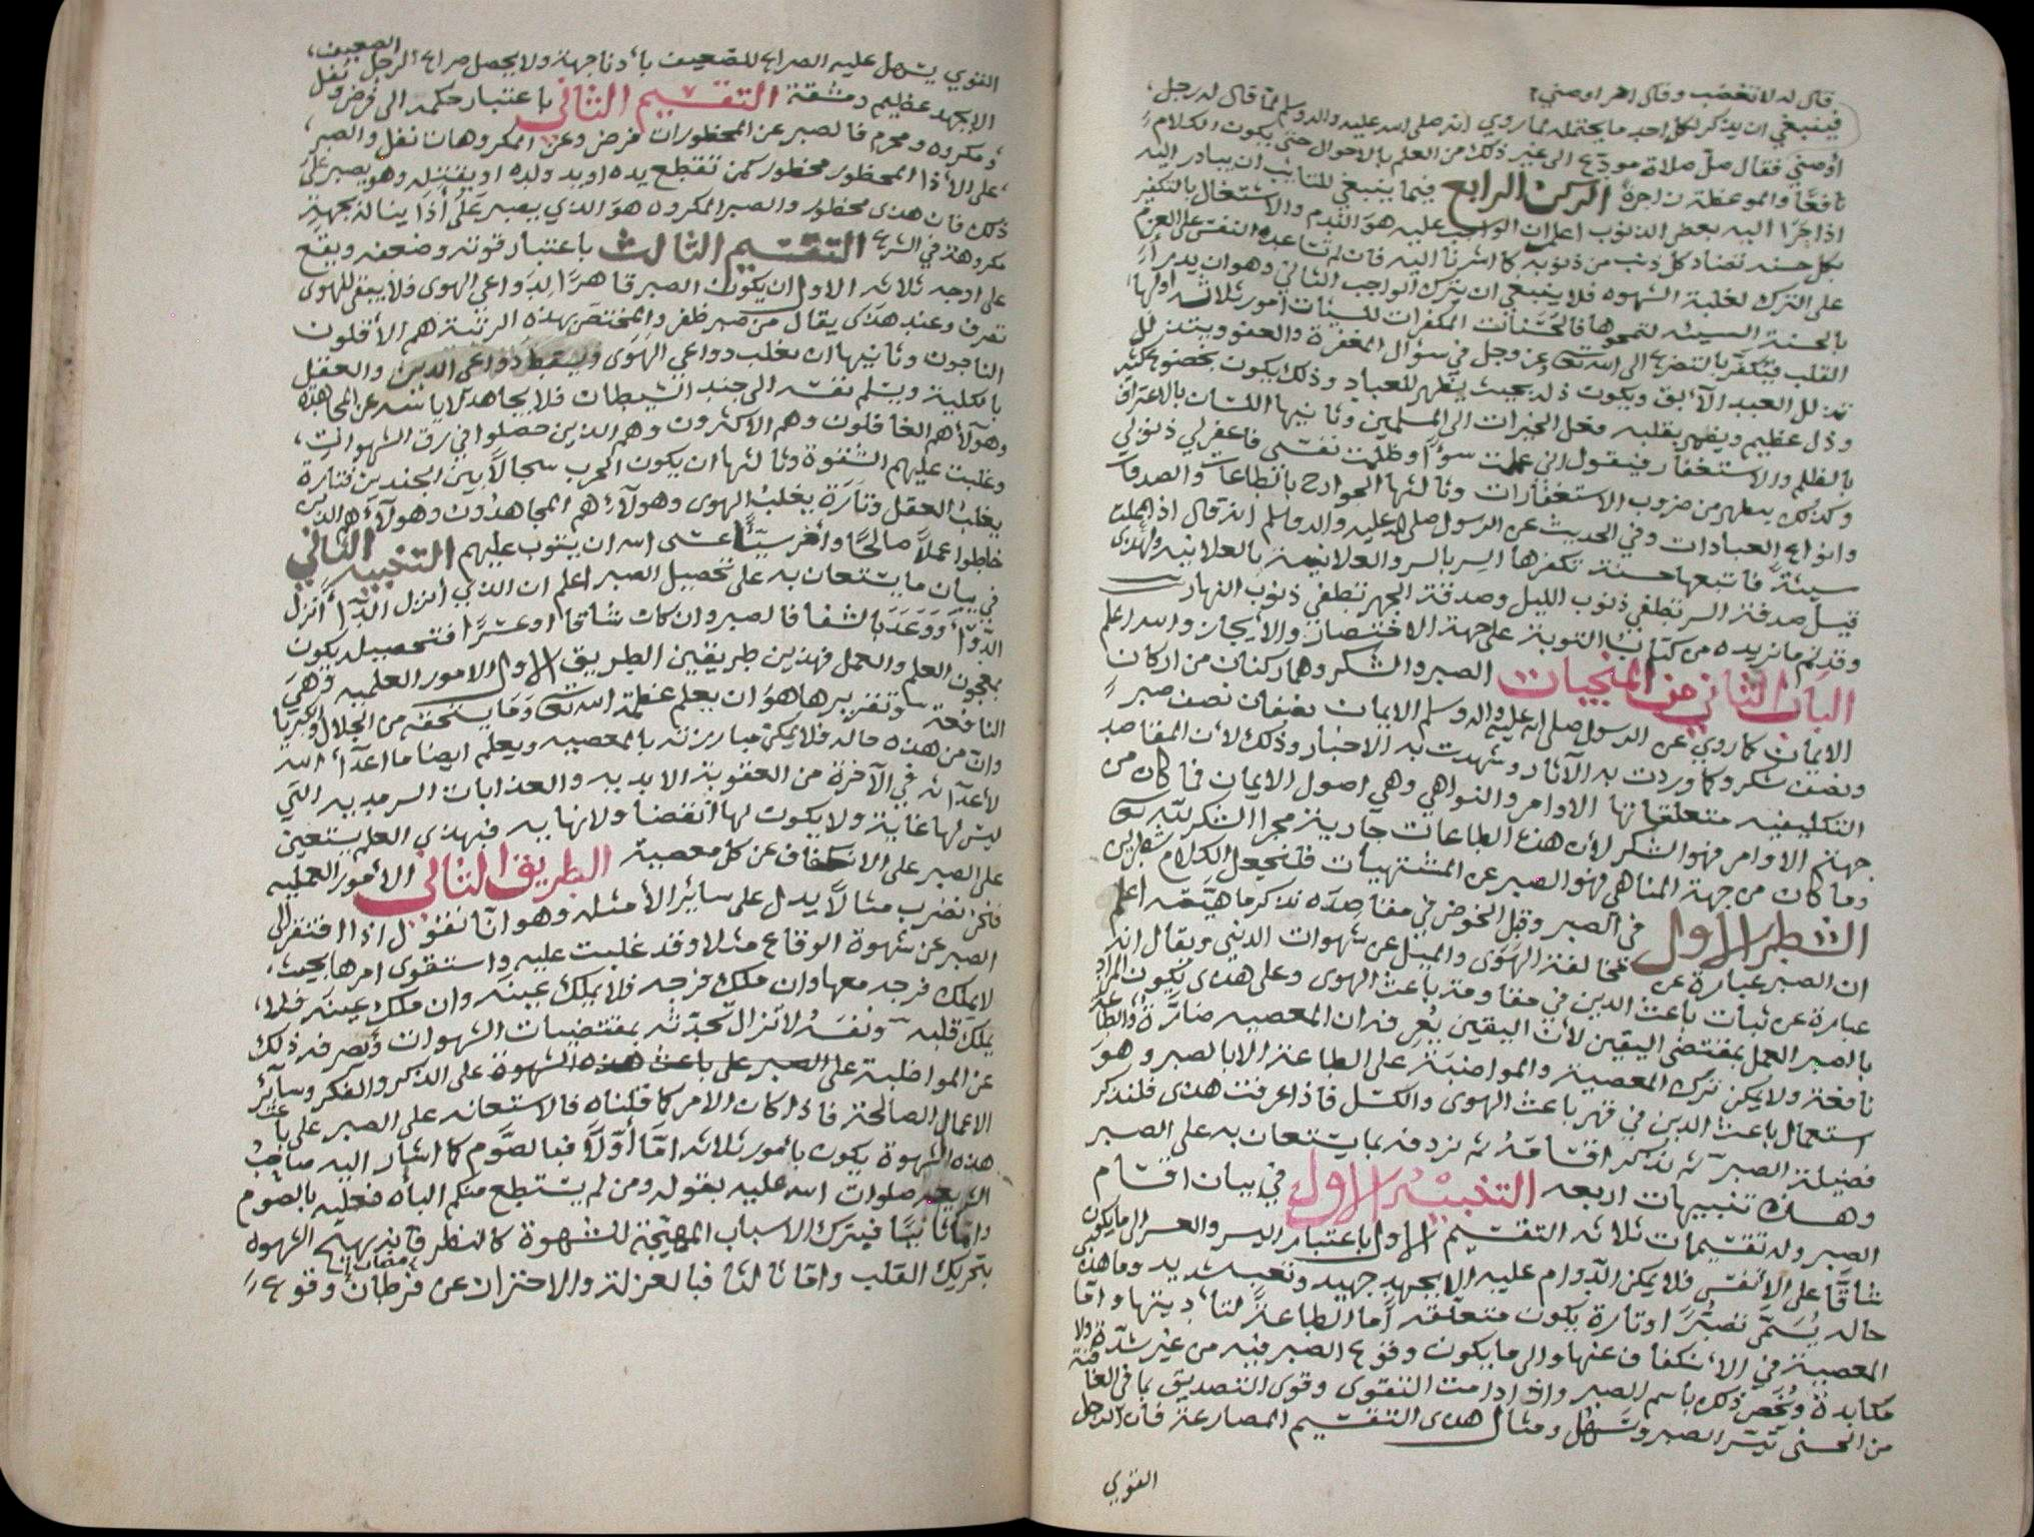 قال له لا تغضب وقال اخر اوصني؟
فينبغي ان يذكر لكل احد ما يحتمله لما روي انه صلى الله عليه واله وسلم لما قال له رجل،
أوصني فقال صلّ صلاة مودّع الى غير ذلك من العلم بالاحوال حتى يكون الكلام
نافعًا والموعظة زاجرة الركن الرابع فيما ينبغي للتايب ان يبادر اليه
اذا جَرَا اليه بعض الذنوب اعلم ان الواجب عليه هو الندم والاشتغال بالتكفير
بكل حسنه تضاد كل ذنب من ذنوبه كما اشرنا اليه فان لم تساعده النفس على العزم
على الترك لغلبة الشهوه فلا ينبغي ان يترك الواجب الثاني وهو ان يدرأ
بالحسنة السيئه لتمحوها فالحَسَنات المكفرات للسيئات امور ثلاثه اولها
القلب فيُكفّر بالتضرع الى الله تعالى عز وجل في سؤال المغفرة والعفو ويتذلل
تذلل العبد الآبق ويكون ذله بحيث يظهر للعباد وذلك يكون بخضوع كثير
وذل عظيم ويضمر بقلبه فعل الخيرات الى المسلمين وثانيها اللسان بالاعتراف
بالظلم والاستغفار فيقول اني عملت سوًآ وظلمت نفسى فاغفر لي ذنوبي
وكذلك يظهر من ضروب الاستغفارات وثالثها الجوارح بالطاعات والصدقات
وانواع العبادات وفي الحديث عن الرسول صلى الله عليه واله وسلم انه قال اذا عملت
سيئةً فاتبعها حسنة تكفرها السر بالسر والعلانية بالعلانيه ولهذى
قيل صدقة السر تطفي ذنوب الليل وصدقة الجهر تطفي ذنوب النهار
وقد تم ما نريده من كتاب التوبة على جهة الاختصار والأيجاز والله اعلم
الباب الثاني من المنجيات الصبر والشكر وهما ركنان من اركان
الايمان كما روي عن الرسول صلى الله عليه واله وسلم الايمان نصفان نصف صبر
ونصف شكر وكما وردت به الآثار وشهدت به الاخبار وذلك لأن المقاصد
التكليفيه متعلقاتها الاوامر والنواهي وهي اصول الايمان فما كان من
جهة الاوامر فهو الشكر لأن هذه الطاعات جارية مجرا الشكر لله تعالى
وما كان من جهة المناهي فهو الصبر عن المشتهيات فلنجعل الكلام شطرين
الشطر الاول في الصبر وقبل الخوض في مقاصده نذكر ماهيّته اعلم
ان الصبر عبارة عن مخالفة الهَوَى والميل عن شهوات الدنيى ويقال انه
عبارة عن ثبات باعث الدين في مقاومة باعث الهوى وعلى هذى يكون المراد
بالصبر العمل بمقتضى اليقين لأن اليقين يُعرِفه ان المعصيه ضارّة والطاعة
نافعة ولا يمكن ترك المعصية والمواضبة على الطاعة الا بالصبر وهو
استعمال باعث الدين في قهر باعث الهوى والكسل فاذا عرفت هذى فلنذكر
فضيلة الصبر ثم نذكر اقسامه ثم نردفه بما يستعان به على الصبر
وهذه تنبيهات اربعه التنبيه الاول في بيان اقسام
الصبر وله تقسيمات ثلاثه التقسيم الاول باعتبار اليسر والعسر الى ما يكون
شاقًّا على الانفس فلا يمكن الدوام عليه الا بجهد جهيد وتعب شديد وما هذى
حاله يُسَمَّى تصبّرًا وتارة يكون متعلقه أما الطاعةً لتأديتها واما
المعصية في الانكفاف عنها والى ما يكون وقوع الصبر فيه من غير شدّة ولا
مكابدة ويُخَصّ ذلك بأسم الصبر واذا دامت التقوى وقوى التصديق بما في العاقبة
من الحسنى تيسّر الصبر وتَسَهّل ومثال هذى التقسيم المصارعة فان الرجل
القوي
القوي يسهل عليه الصراع للضعيف بأدنا جهة ولا يحصل صراع الرجل الضعيف،
الا بجهد عظيم ومشقة التقسيم الثاني باعتبار حكمه الى فرض ونفل
ومكروه ومحرم فالصبر عن المحظورات فرض وعن المكروهات نفل والصبر،
على الأذا المحظور محظور كمن تقطع يده او يد ولده او يقتله وهو يصبر على
ذلك فان هذى محظور والصبر المكروه هو الذي يصبر على أذًا يناله بجهة
مكروهة في الشرع التقسيم الثالث باعتبار قوته وضعفه ويقع
على اوجه ثلاثه الاول ان يكون الصبر قاهرًا لِدَواعي الهوى فلا يبقى للهوى
تصرف وعند هذى يقال من صبر ظفر والمختص بهذه الرتبة هم الأقلون
الناجون وثانيها ان تغلب دواعي الهَوَى ويسقط دَواعي الدين والعقل
بالكلية ويسلم نفسه الى جند الشيطان فلا يجاهد لاياسه عن المجاهده
وهوآلاء هم الغافلون وهم الاكثرون وهم الذين حصلوا في رق الشهوات،
وغلبت عليهم الشقوة وثالثها ان يكون الحرب سجالًا بين الجندين فتارة
يغلبُ العقل وتارَة يغلبُ الهوى وهولآء هم المجاهدون وهولآء هم الذين
خلطوا عملًا صالحًا وآخر سيّئًا عسى الله ان يتوب عليهم التنبيه الثاني
في بيان ما يستعان به على تحصيل الصبر اعلم ان الذي أنزل الدّآ أنزل
الدّوآ وَوَعَدَ بالشفا فالصبر وان كان شاقا او عسرًا فتحصيله يكون
بمعجون العلم والعمل فهذين طريقين الطريق الاول الامور العلميه وَهيَ
النافعة وتقريرها هو ان يعلم عظمة الله تعالى وَمَا يستحقه من الجلال والكبريا
وان من هذه حاله فلا يمكن مبارزته بالمعصيه ويعلم ايضا ما اعدّ الله
لأعدآئه في الآخرة من العقوبة الابديه والعذابات السرمديه التي
ليس لها غاية ولا يكون لها انقضا ولا نهايه فبهذى العلم يستعين
على الصبر على الانكفاف عن كل معصية الطريق الثاني الأمور العمليه
فلنضرب مثالًا يدل على سائر الأمثله وهو انّا نقول اذا افتقر الى
الصبر عن شهوة الوقاع مثلا وقد غلبت عليه واستقوى امرها بحيث،
لا يملك فرجه معها وان ملك فرجه فلا يملك عينه وان ملك عينه فلا،
يملك قلبه ونفسُه لا تزال تحدّثه بمقتضيات الشهوات وتصرفه ذلك
عن المواظبة على الصبر على باعث هذه الشهوة على الذكر والفكر وسآئر
الاعمال الصالحة فاذا كان الامر كما قلناه فالاستعانه على الصبر على باعث
هذه الشهوة يكون بأمور ثلاثه امّا أوّلًا فبالصَّوم كما اشار اليه صاحبُ
الشريعه صلوات الله عليه بقوله ومن لم يستطع منكم الباه فعليه بالصوم
وامّا ثانيًا فبترك الاسباب المهيّجة للشهوة كالنظر فانه يهيج الشهوه
بتحريك القلب واما ثالثا فبالعزلة والاحتراز عن مضان وقوع